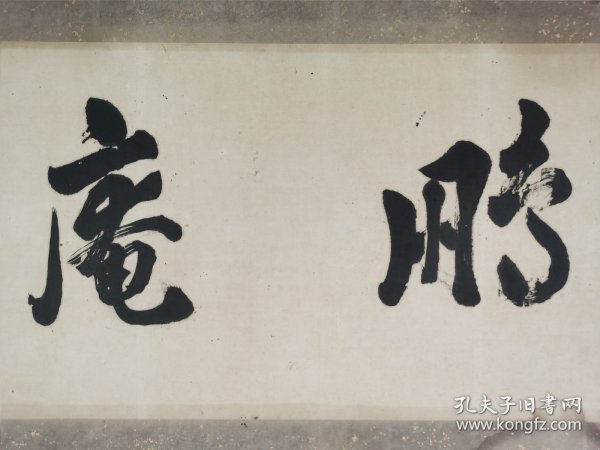 鵬庵
孔夫子旧书网
www.kongfz.com